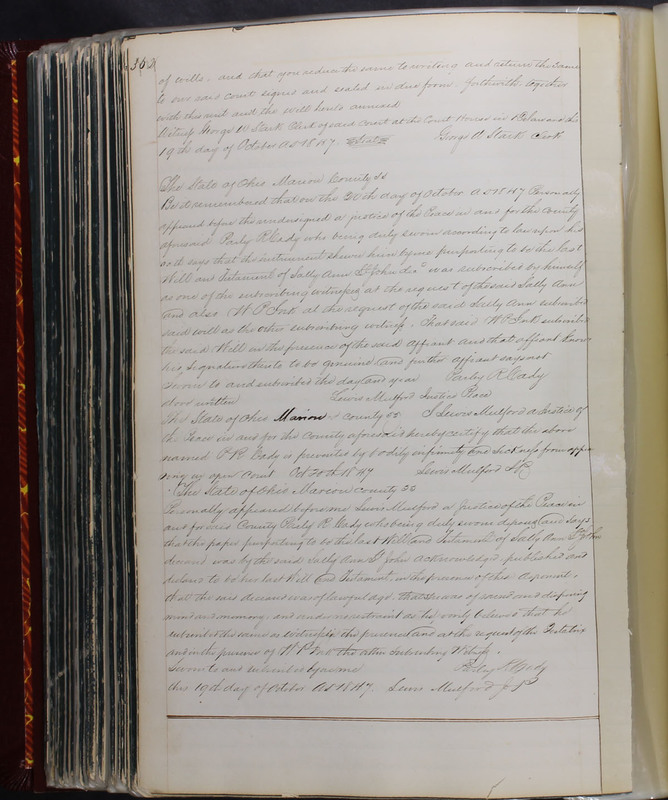 362
of wills, and that you reduce the same to writing and return the same
to our said court signed and sealed in due form forthwith together
with this writ and the will hereto annexed
Witness George W Stark Clerk of said Court at the Court House in Delaware this
19th day of October AD 1847 Seal George W Stark Clerk
The State of Ohio Marion County SS
Be it remembered that on the 20th day of October AD 1847 Personally
appeared before the undersigned a justice of the Peace in and for the County
aforesaid Parley R Cady who being duly sworn according to law upon his
oath says that the instrument shewn him by me purporting to be the last
Will and Testament of Sally Ann St John decd was subscribed by himself
as one of the subscribing witnesses at the request of the said Sally Ann
and also W P at the request of the said Sally Ann subscribed
said will as the other subscribing witness. That said W P subscribed
the said Will in the presence of the said affiant and that affiant knows
his signature thereto to be genuine and further affiant says not
Sworn to and subscribed the day and year Parley R Cady
above written Lewis Mulford Justice Peace
The State of Ohio Marion County SS. I Lewis Mulford a Justice of
the Peace in and for the County aforesaid hereby certify that the above
named P R Cady is prevented by bodily infirmity and sickness from appear
ing in open Court Oct 20th 1847 Lewis Mulford JP
The State of Ohio Marion County SS
Personally appeared before me Lewis Mulford a Justice of the Peace in
and for said County Parley R Cady who being duly sworn deposes and says
that the paper purporting to be the last Will and Testament of Sally Ann St John
deceased was by the said Sally Ann St John acknowledged published and
declared to be her last Will and Testament in the presence of this deponent,
that the said deceased was of lawful age. that she was of sound and disposing
mind and memory, and under no restraint as he verily believes that he
subscribed the same as witness in the presence and at the request of the Testatrix
and in the presence of W P the other subscribing Witness.
Sworn to and subscribed before me Parley R Cady
this 19th day of October AD 1847. Lewis Mulford J P